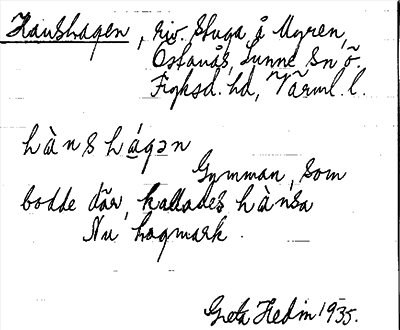 Hanshagen, riv. stuga å Myren,
Östanås, Sunne sn ö.
Fryksd. hd, Värml. l.
hànshágən
Gumman, som
bodde där, kallades hànsa
Nu hagmark.
Greta Hedin 1935.